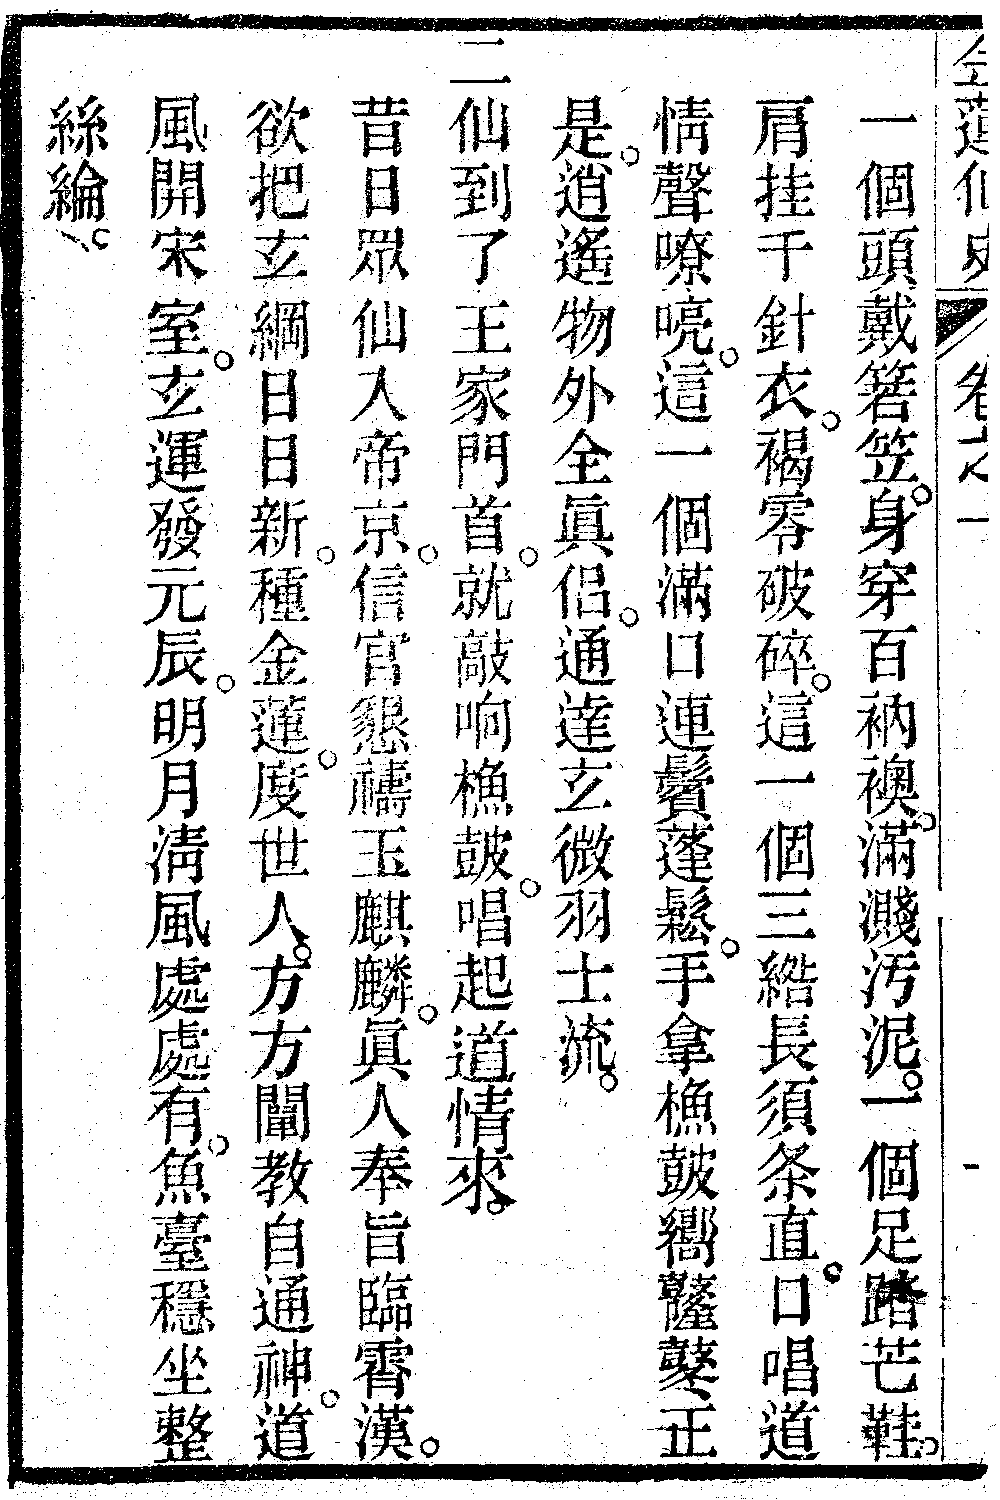 金蓮仙史 卷之一
一個頭戴箬笠。身穿百衲襖。滿濺汚泥。一個足踏芒鞋。
肩挂千針衣。褐零破碎。這一個三綹長須条直。口唱道
情聲嘹喨。這一個滿口連鬢蓬鬆。手拿樵鼓嚮鼕鼕正
是。逍遙物外全眞侶。通達玄微羽士流。
二仙到了王家門首。就敲响樵鼓。唱起道情來。
昔日眾仙入帝京。信官懇禱玉麒麟。眞人奉旨臨霄漢。
欲把玄綱日日新。種金蓮。度世人。方方闡教自通神。道
風開宋室。玄運發元辰。明月淸風處處有。魚臺穩坐整
絲綸。